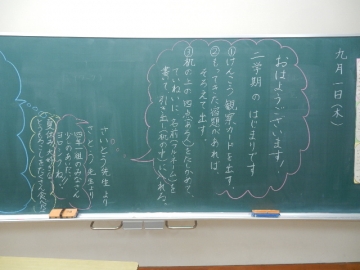 九月一日(木)
おはようございます！
二学期のはじまりです
①けんこう観察カードを出す。
②もってきた宿題があれば、
そろえて出す。
③机の上の四点(あるか)をたしかめて、
ていねいに名前(フルネーム)を
書いて、引き出し(机の中)に入れる。
さいとう先生より
四年一組のみなさん
少しのあいだ
ヨロシクね！